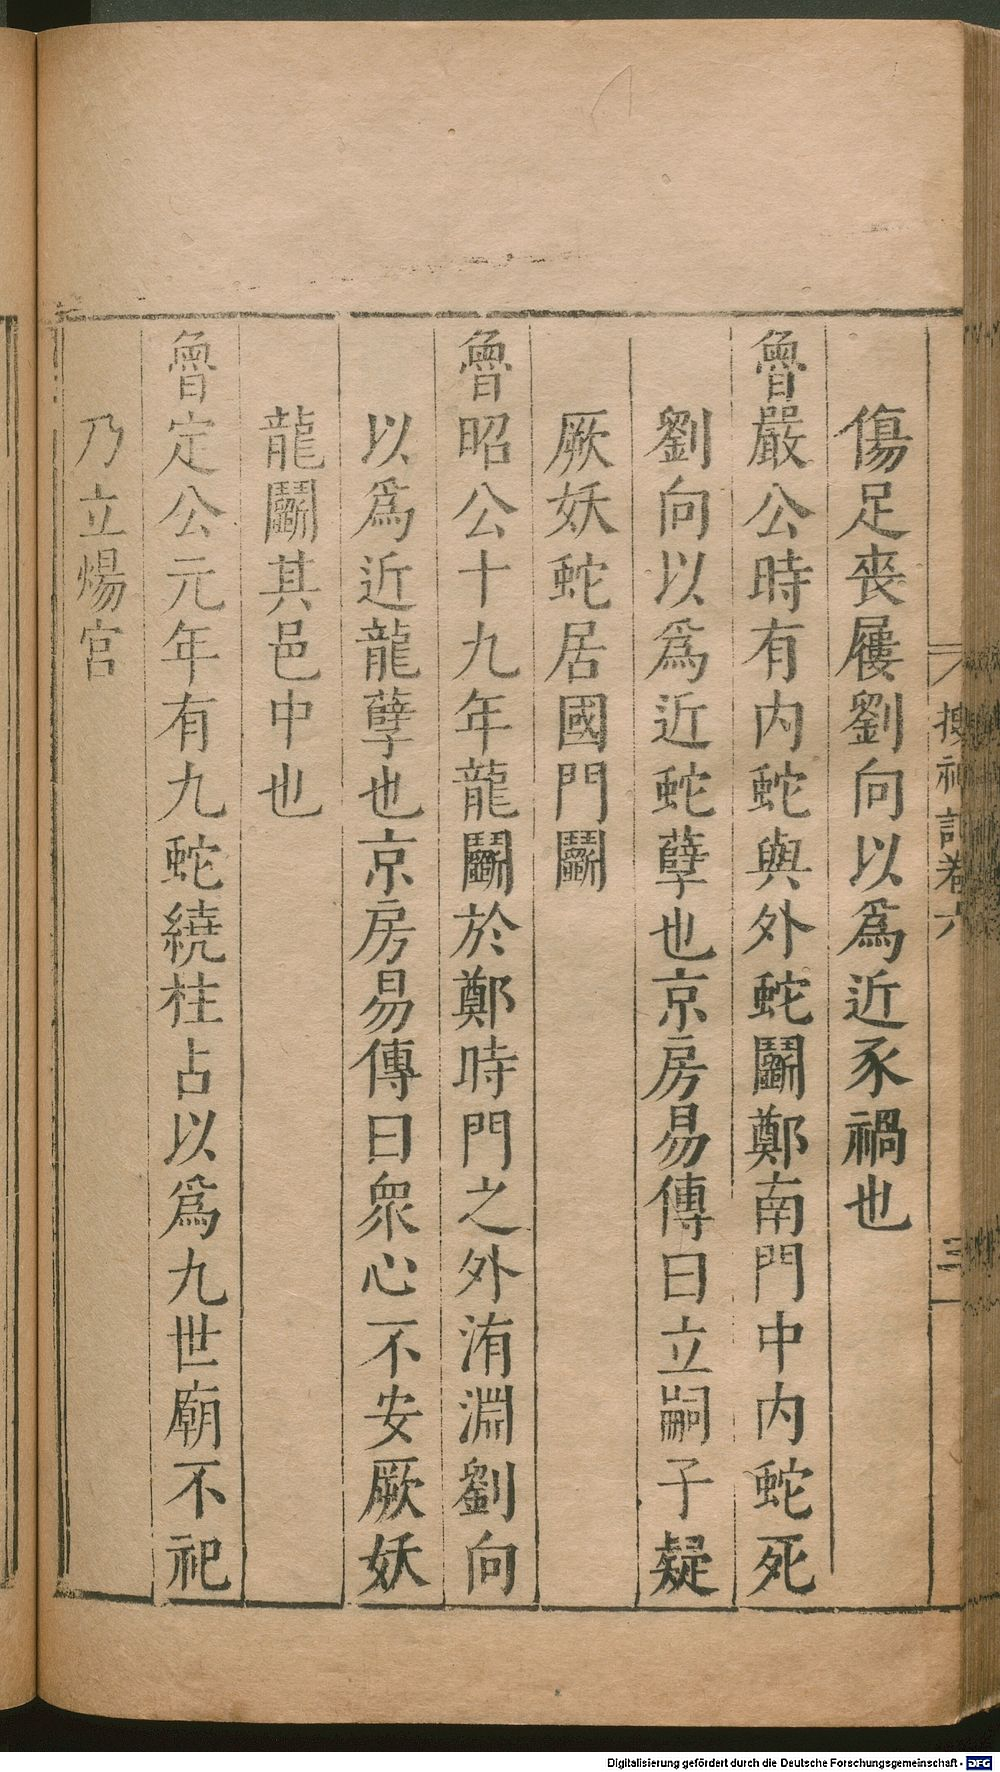 傷足喪屨劉向以爲近豕禍也
魯嚴公時有内蛇與外蛇鬭鄭南門中内蛇死
劉向以爲近蛇孽也京房易傳曰立嗣子疑
厥妖蛇居國門鬭
魯昭公十九年龍鬭於鄭時門之外洧淵劉向
以爲近龍孽也京房易傳曰衆心不安厥妖
龍鬭其邑中也
魯定公元年有九蛇繞柱占以爲九世廟不祀
乃立煬宮
搜神記卷六
三
Digitalisierung gefördert durch die Deutsche Forschungsgemeinschaft - DFG